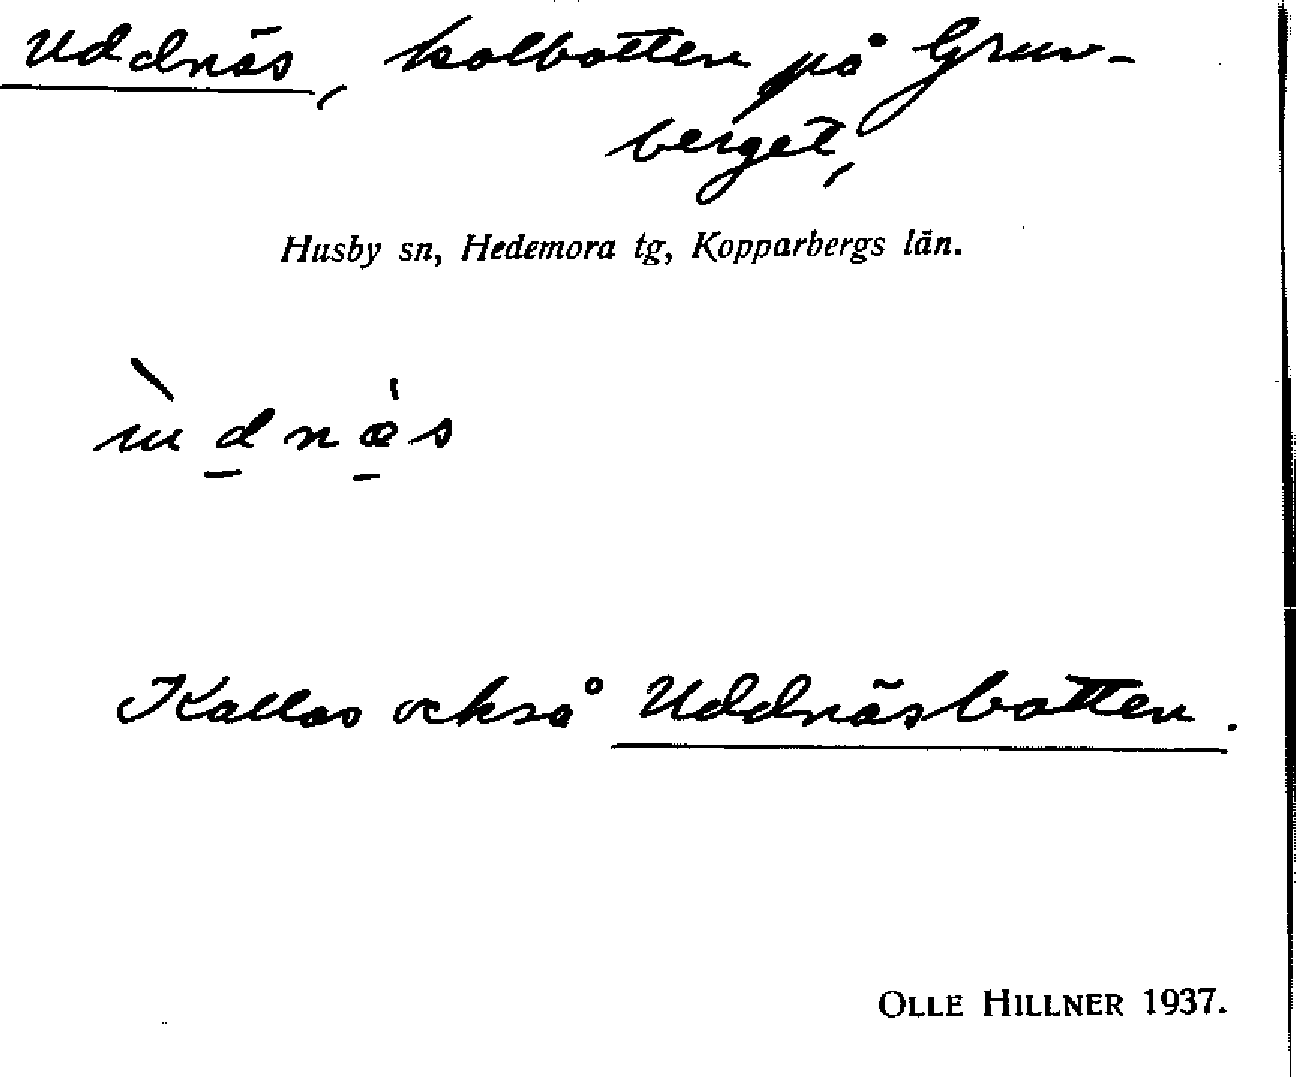 Uddnäs, kolbotten på Gruv-
berget,
Husby sn, Hedemora tg, Kopparbergs län.
Kallas också Uddnäsbotten.
OLLE HILLNER 1937.